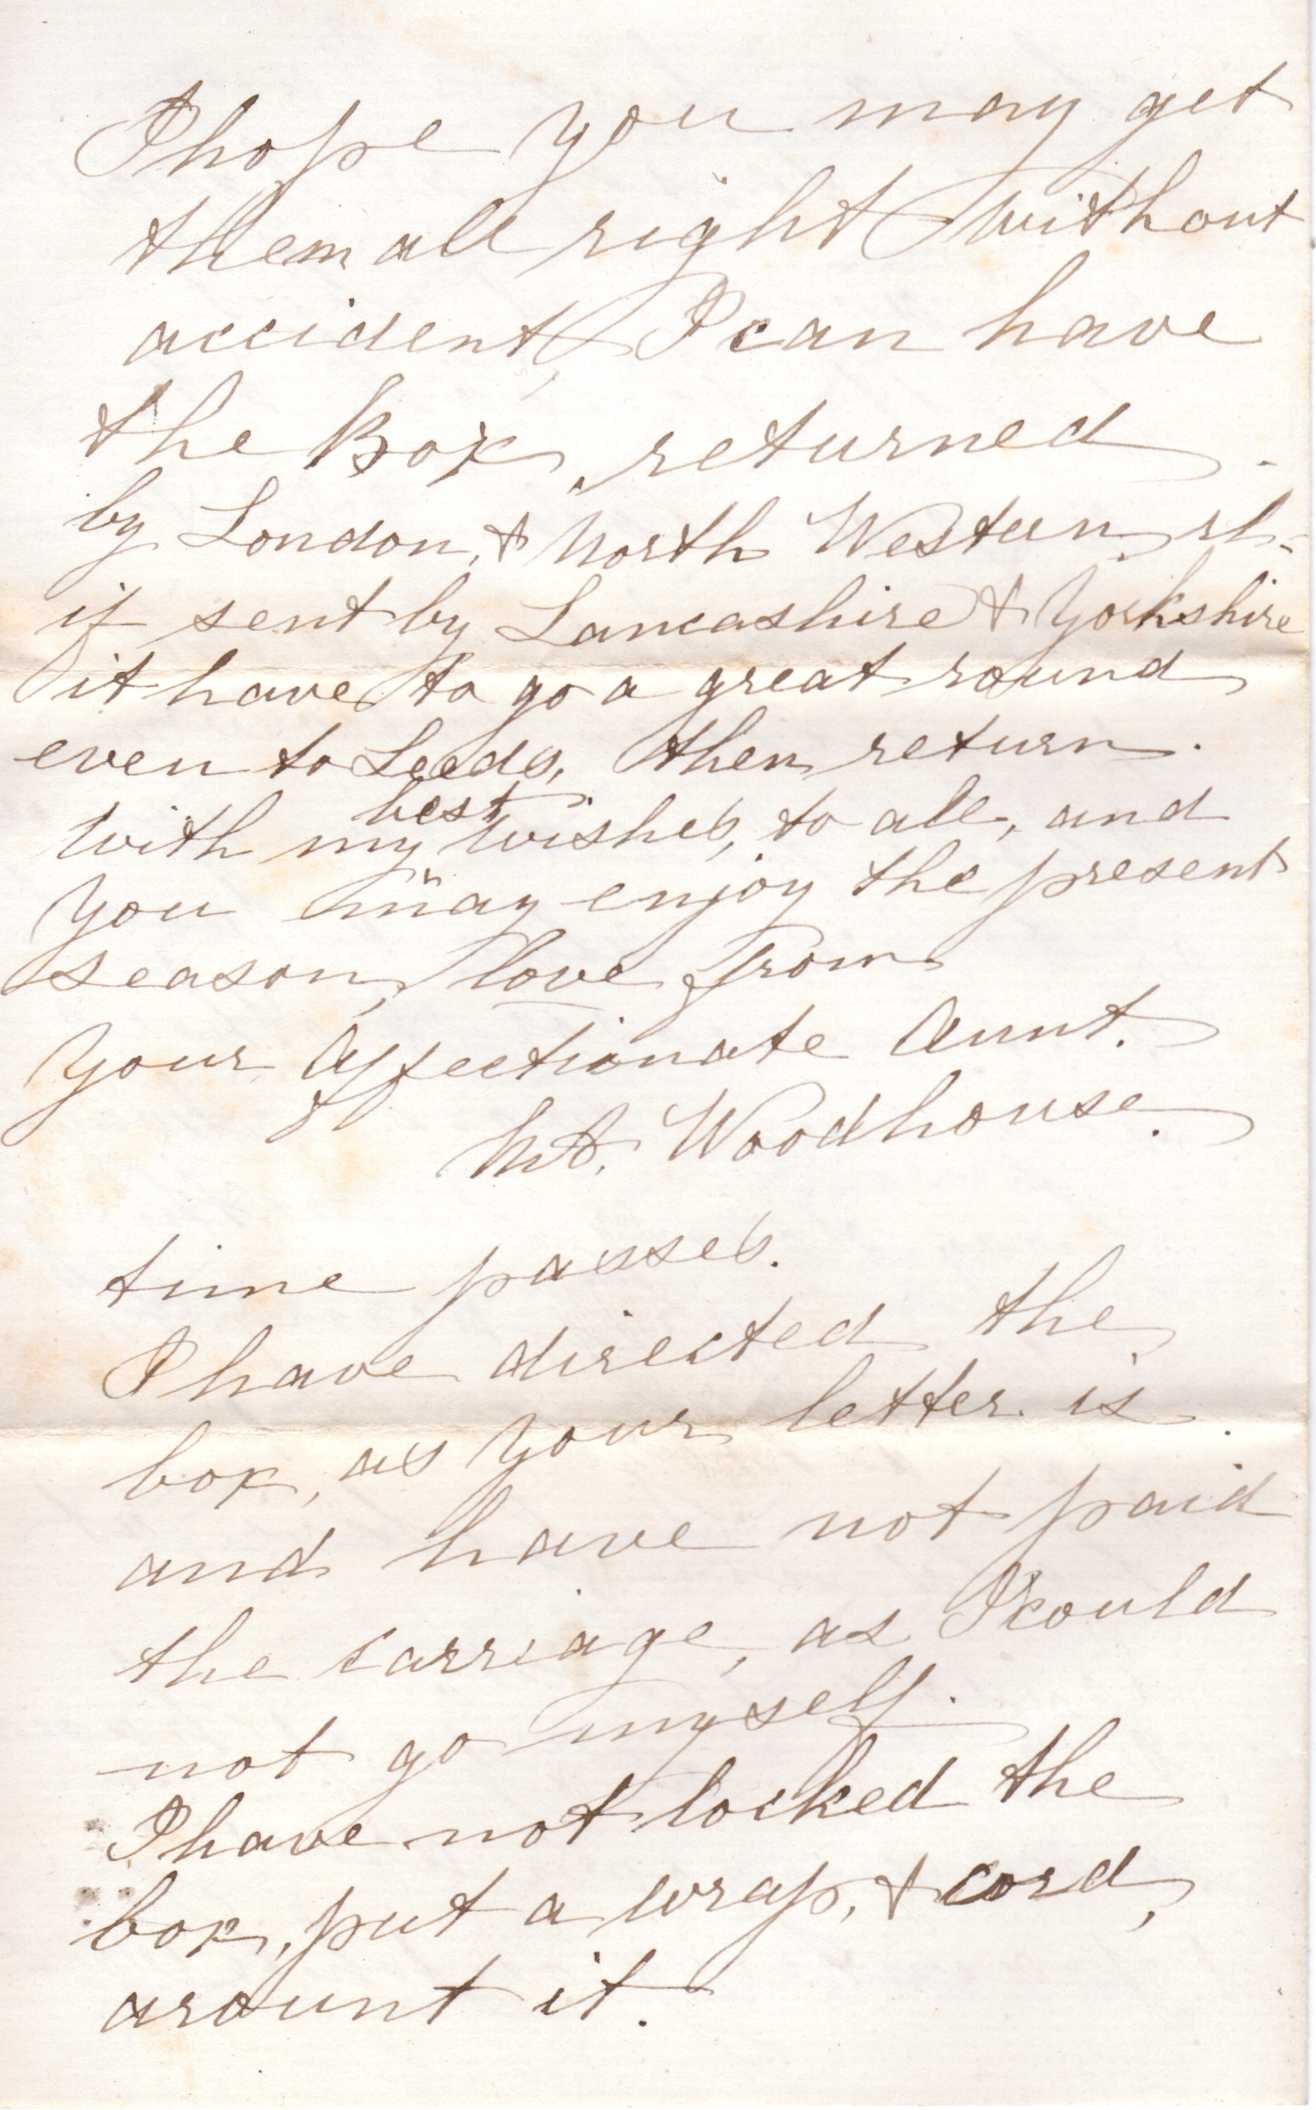 I hope you may get
them all right without
accident, I can have
the Box, returned.
by London, & North Western,
if sent by Lancashire & Yorkshire
it have to go a great round
even to Leeds, then return.
With my best wishes, to all, and
you may enjoy the present
season, love from
your Affectionate Aunt.
Woodhouse.
time passes.
I have directed the
box, as your letter is.
and have not paid
the carriage, as I could
not go myself.
I have not locked the
box, put a wrap, & cord,
arount it.